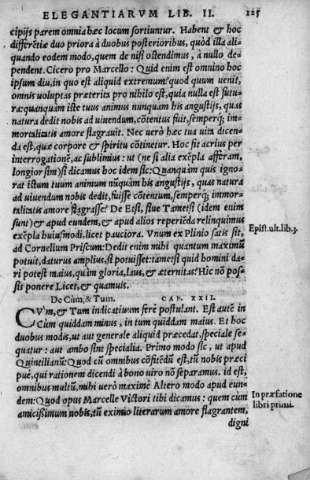 ELEGANTIARVM LIB. II. 125
cipijs parem omnia hæc locum sortiuntur. Habent & hoc
differẽtiæ duo priora à duobus posterioribus, quòd illa ali-
quando eodem modo, quem de nisi ostendimus, à nullo de-
pendent. Cicero pro Marcello: Quid enim est omnino hoc
ipsum diu, in quo est aliquid extremum? quod quum uenit,
omnis uoluptas præterita pro nihilo est, quia nulla est futu-
ra: quanquam iste tuus animus nunquam his angustijs, quas
natura dedit nobis ad uiuendum, cõtentus fuit, semperq; im-
mortalitatis amore flagrauit. Nec uerò hæc tua uita dicen-
da est, quæ corpore & spiritu cõtinetur. Hoc fit acrius per
interrogationẽ, ac sublimius: ut (ne si alia exẽpla afferam,
longior sim) si dicamus hoc idem sic: Quanquam quis igno-
rat istum tuum animum nũquàm his angustijs, quas natura
ad uiuendum nobis dedit, fuisse cõtentum, semperq; immor-
talitatis amore flagrasse? De Etsi, siue Tametsi (idem enim
sunt) & apud eundem, & apud alios reperiẽda relinquimus
exẽpla huiusmodi, licet pauciora. Vnum ex Plinio satis sit,
ad Cornelium Priscum: Dedit enim mihi quantum maximũ
potuit, daturus amplius, si potuisset: tametsi quid homini da-
ri potest maius, quàm gloria, laus, & æternitas? Hic nõ pos-
sis ponere Licet, & quamuis.
Epist. ult. lib. 3.
De Cùm, & Tum. CAP. XXII.
CVm, & Tum indicatiuum ferè postulant. Est autẽ in
Cùm quiddam minus, in tum quiddam maius. Et hoc
duobus modis, ut aut generale aliquid præcedat, speciale se-
quatur: aut ambo sint specialia. Primo modo sic, ut apud
Quintilianũ: Quod cũ omnibus cõfitẽdũ est, tũ nobis præci
puè, qui rationem dicendi à bono uiro nõ separamus. id est,
omnibus multũ, mihi uerò maximè. Altero modo apud eun-
dem: Quod opus Marcelle Victori tibi dicamus: quem cùm
amicißimum nobis, tũ eximio literarum amore flagrantem,
In præfatione
libri primi.
digni